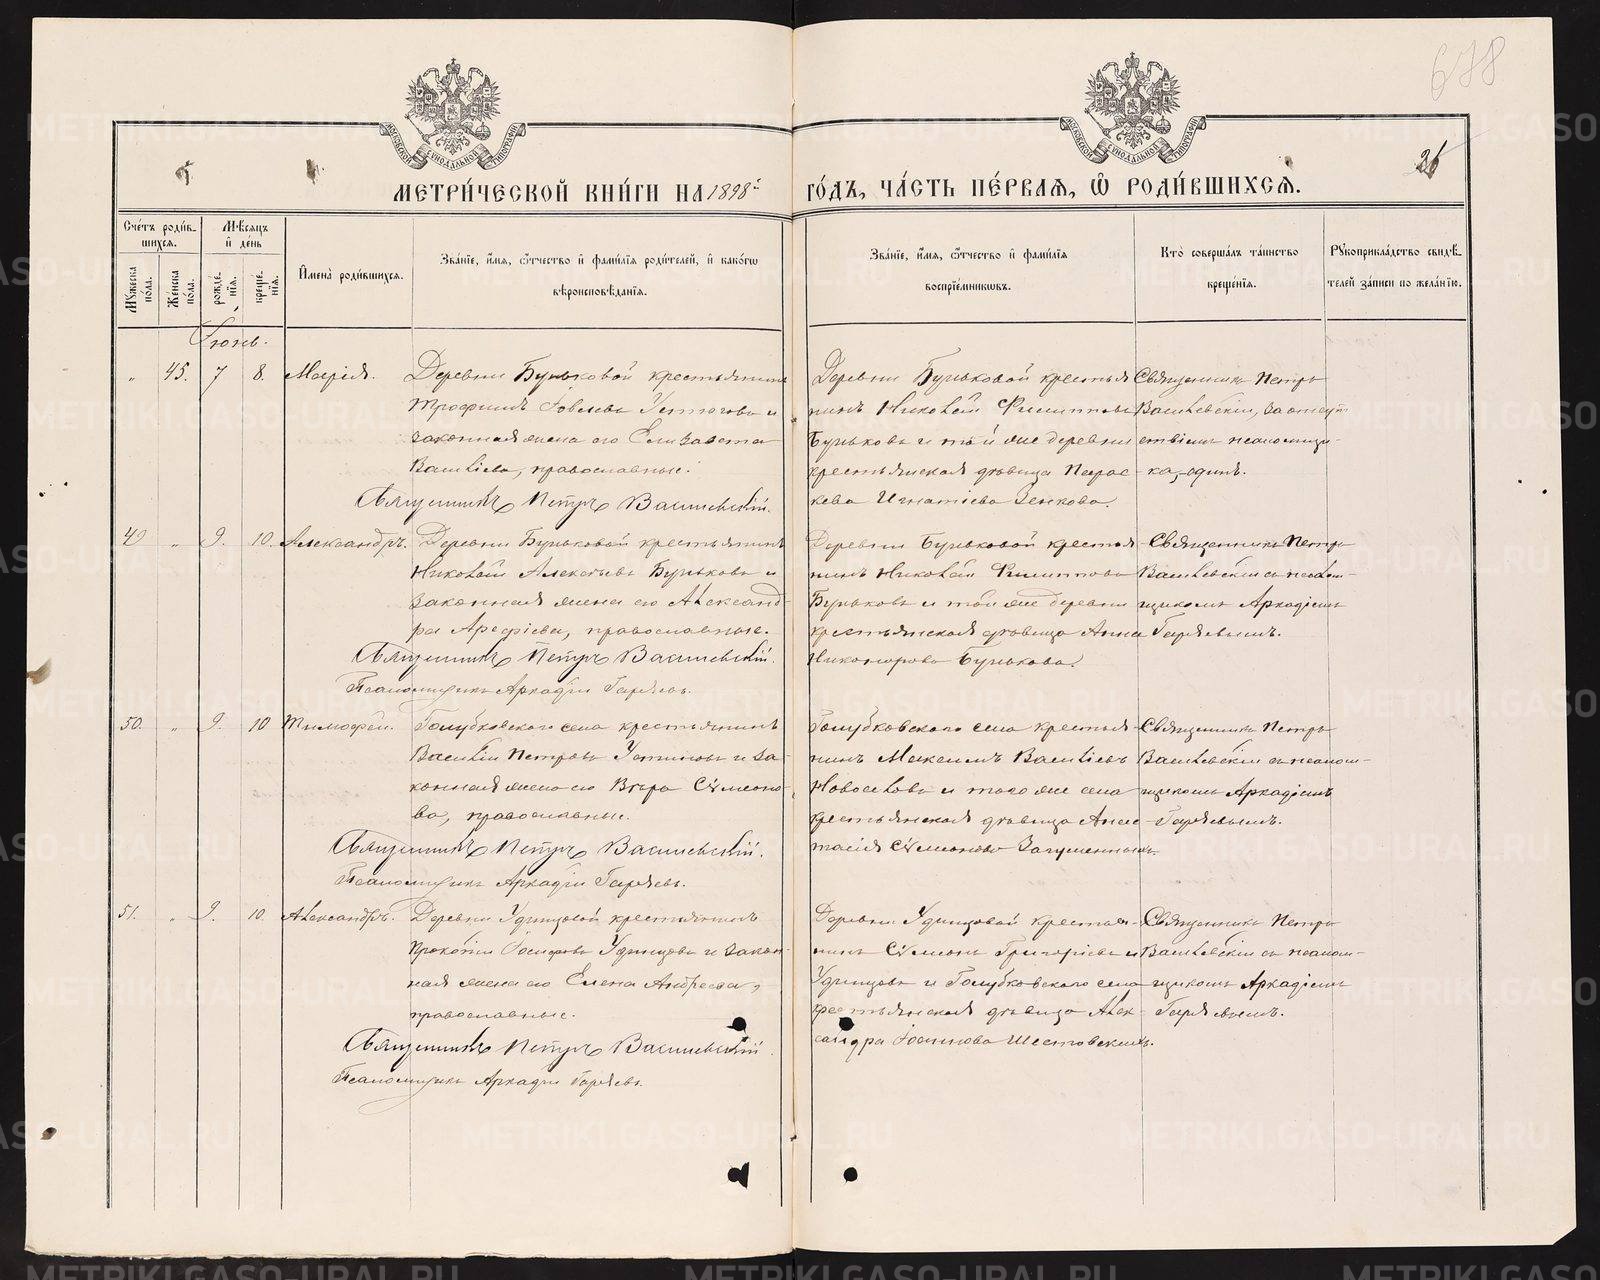 678
26
МЕТРИ́ЧЕСКОЙ КНИ́ГИ НА 1898й ГО́ДЪ, ЧА́СТЬ ПЕ́РВАЯ, Ѽ РОДИ́ВШИХСЯ.
Сче́тъ роди́вшихся.
Му́жеска по́ла.
Же́нска по́ла.
Мѣ́сяцъ и҆ де́нь
рожде́нїя.
креще́нїя.
И҆мена̀ роди́вшихся.
Зва́нїе, и҆́мя, ѻ҆́тчество и҆ фами́лїя роди́телей, и҆ како́гѡ
вѣроисповѣ́данїя.
Зва́нїе, и҆́мя, ѻ҆́тчество и҆ фами́лїя
воспрїе́мникѡвъ.
Кто̀ соверша́лъ та́инство
креще́нїя.
Рꙋкоприкла́дство свидѣ́телей за́писи по жела́нїю.
Іюнь.
„ 45. 7 8. Марія.
Деревни Буньковой крестьянинъ
Трофимъ Іовлевъ Устюговъ и
законная жена его Елизавета
Васильева, православные.
Священникъ Петръ Васильевскій.
Деревни Буньковой крестья-
нинъ Николай Филипповъ
Буньковъ и той же деревни
крестьянская дѣвица Парас-
кева Игнатіева Зенкова.
Священникъ Петръ
Васильевскій, за отсут-
ствіемъ псаломщи-
ка, одинъ.
49 „ 9. 10. Александръ.
Деревни Буньковой крестьянинъ
Николай Алексѣевъ Буньковъ и
законная жена его Александ-
ра Арефіева, православные.
Священникъ Петръ Васильевскій.
Псаломщикъ Аркадій Гаряевъ.
Деревни Буньковой крестья-
нинъ Николай Филипповъ
Буньковъ и той же деревни
крестьянская дѣвица Анна
Никонорова Бунькова.
Священникъ Петръ
Васильевскій съ псалом-
щикомъ Аркадіемъ
Гаряевымъ.
50. „ 9. 10 Тимофей.
Голубковского села крестьянинъ
Василій Петровъ Устиновъ и за-
конная жена его Вѣра Сѷмеоно-
ва, православные.
Священникъ Петръ Васильевскій.
Псаломщикъ Аркадій Гаряевъ.
Голубковского села крестья-
нинъ Максимъ Васильевъ
Новоселовъ и того же села
крестьянская дѣвица Анас-
тасія Сѷмеонова Загуменныхъ.
Священникъ Петръ
Васильевскій съ псалом-
щикомъ Аркадіемъ
Гаряевымъ.
51. „ 9. 10. Александръ.
Деревни Удинцовой крестьянинъ
Прокопій Іосифовъ Удинцовъ и закон-
ная жена его Елена Андреева,
православные.
Священникъ Петръ Васильевскій.
Псаломщикъ Аркадій Гаряевъ.
Деревни Удинцовой крестья-
нинъ Сѷмеонъ Григоріевъ
Удинцовъ и Голубковского села
крестьянская дѣвица Алек-
сандра Іосипова Шестовскихъ.
Священникъ Петръ
Васильевскій съ псалом-
щикомъ Аркадіемъ
Гаряевымъ.
METRIKI.GASO-URAL.RU